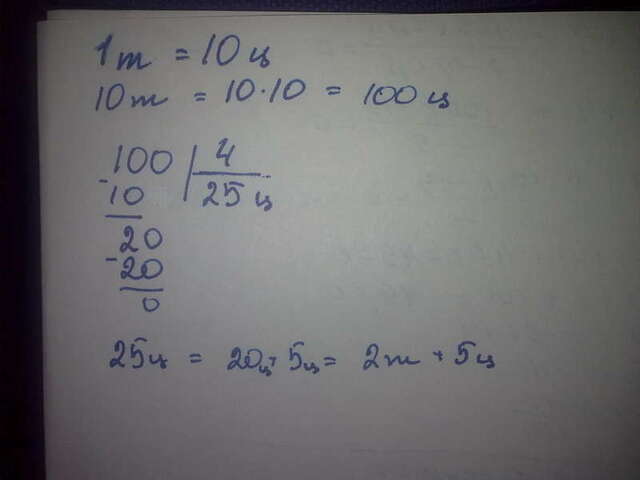 1т = 10ц
10т = 10·10 = 100ц
100 | 4
-10 | 25ц
20
-20
0
25ц = 20ц + 5ц = 2т + 5ц